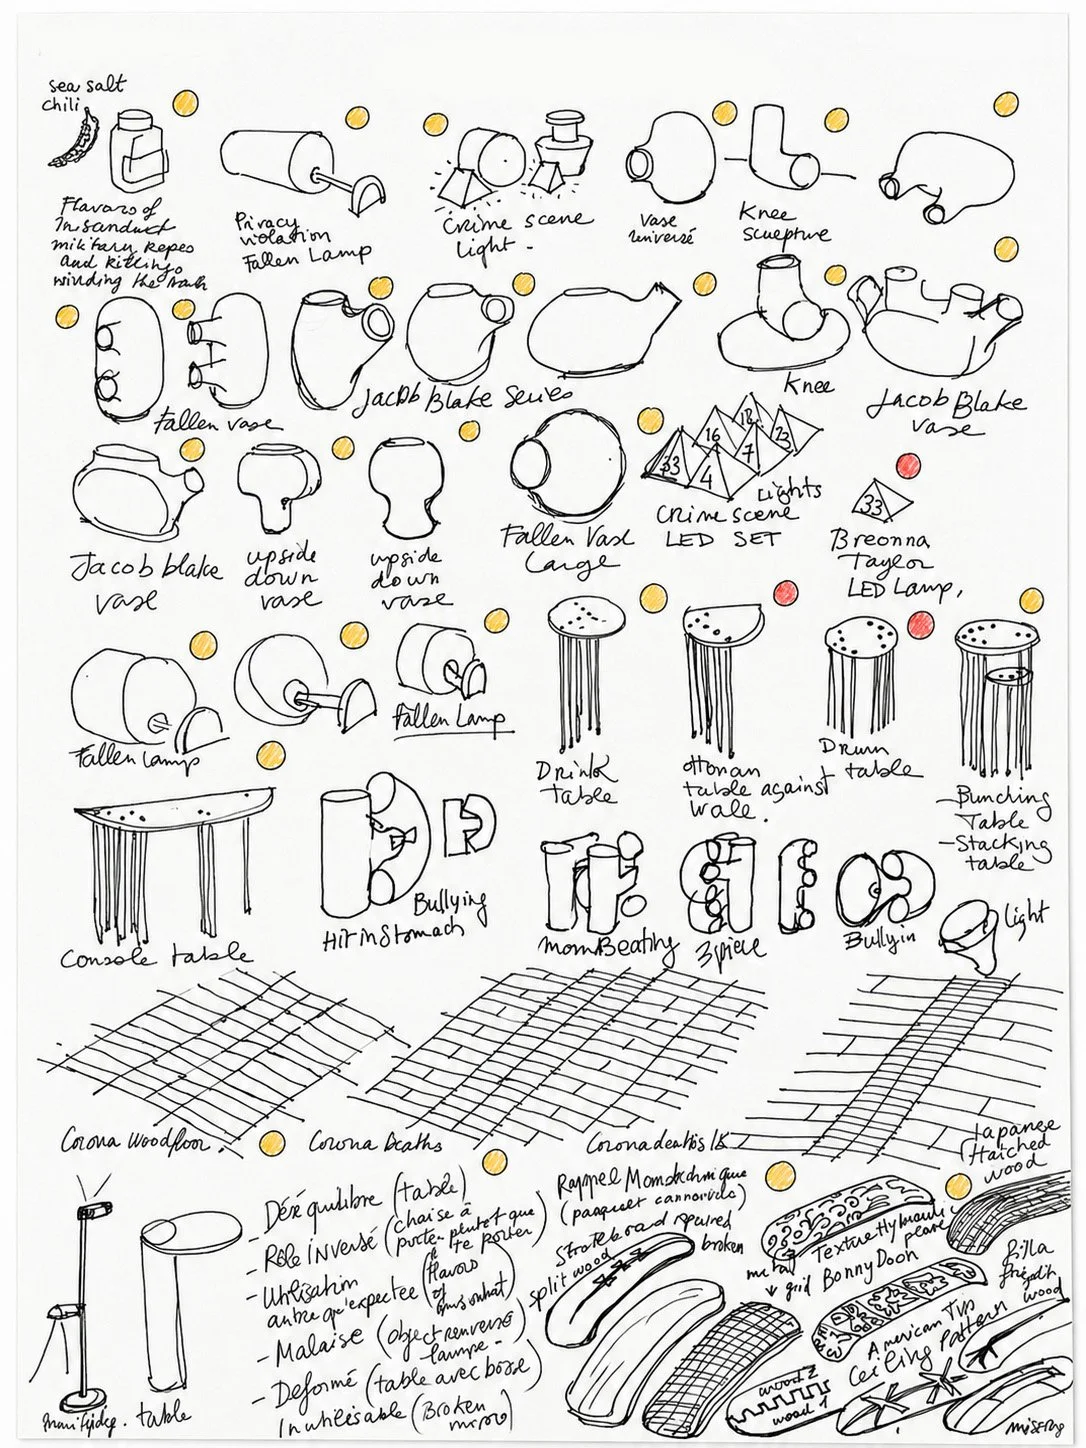 sea salt
chili
Flavors of
military
and killings
Privacy
violation
Fallen Lamp
Crime scene
Light -
Vase
Knee
sculpture
Fallen vase
Jacob Blake Series
Knee
Jacob Blake
vase
Jacob blake
vase
upside
down
vase
upside
down
vase
Fallen Vase
Large
33
16
4
18
7
23
Lights
Crime scene
LED SET
33
Breonna
Taylor
LED Lamp,
Fallen lamp
Fallen Lamp
Drink
table
table against
wall.
Drum
table
-Bunching
Table
-Stacking
table
Console table
Bullying
Hit in Stomach
Mom Beating
3 piece
Light
Corona Woodfloor.
Corona Deaths
Corona deaths
Japanese
Hatched
wood
table
- Déséquilibre (table)
- Rôle inversé (chaise à
porter plutot que
te porter)
- Utilisation
autre qu'expectee (flavors
of
- Malaise (object renversé
- lampe -
- Deformé (table avec bosse)
Inutilisable (Broken
Skateboard repaired
broken
split wood
metal
grid
Bonny Doon
American Tin
Ceiling Pattern
wood
wood 2
wood 1